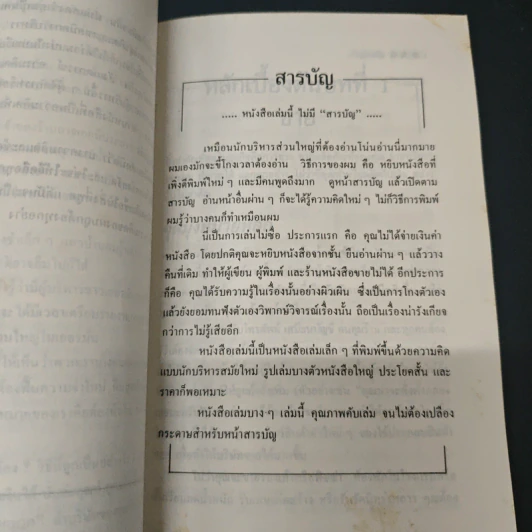 สารบัญ
..... หนังสือเล่มนี้ ไม่มี "สารบัญ" .....
เหมือนนักบริหารส่วนใหญ่ที่ต้องอ่านโน่นอ่านนี่มากมาย
ผมเองมักจะขี้โกงเวลาต้องอ่าน วิธีการของผม คือ หยิบหนังสือที่
เพิ่งตีพิมพ์ใหม่ ๆ และมีคนพูดถึงมาก ดูหน้าสารบัญ แล้วเปิดตาม
สารบัญ อ่านหน้าอื่นผ่าน ๆ ก็จะได้รู้ความคิดใหม่ ๆ ไม่กี่วิธีการพิมพ์
ผมรู้ว่าบางคนก็ทำเหมือนผม
นี่เป็นการเล่นไม่ซื่อ ประการแรก คือ คุณไม่ได้จ่ายเงินค่า
หนังสือ โดยปกติคุณจะหยิบหนังสือจากชั้น ยืนอ่านผ่าน ๆ แล้ววาง
คืนที่เดิม ทำให้ผู้เขียน ผู้พิมพ์ และร้านหนังสือขายไม่ได้ อีกประการ
ก็คือ คุณได้รับความรู้ในเรื่องนั้นอย่างผิวเผิน ซึ่งเป็นการโกงตัวเอง
แล้วยังยอมทนฟังตัวเองวิพากษ์วิจารณ์เรื่องนั้น ถือเป็นเรื่องน่ารังเกียจ
กว่าการไม่รู้เสียอีก
หนังสือเล่มนี้เป็นหนังสือเล่มเล็ก ๆ ที่พิมพ์ขึ้นด้วยความคิด
แบบนักบริหารสมัยใหม่ รูปเล่มบางตัวหนังสือใหญ่ ประโยคสั้น และ
ราคาก็พอเหมาะ
หนังสือเล่มบาง ๆ เล่มนี้ คุณภาพคับเล่ม จนไม่ต้องเปลือง
กระดาษสำหรับหน้าสารบัญ